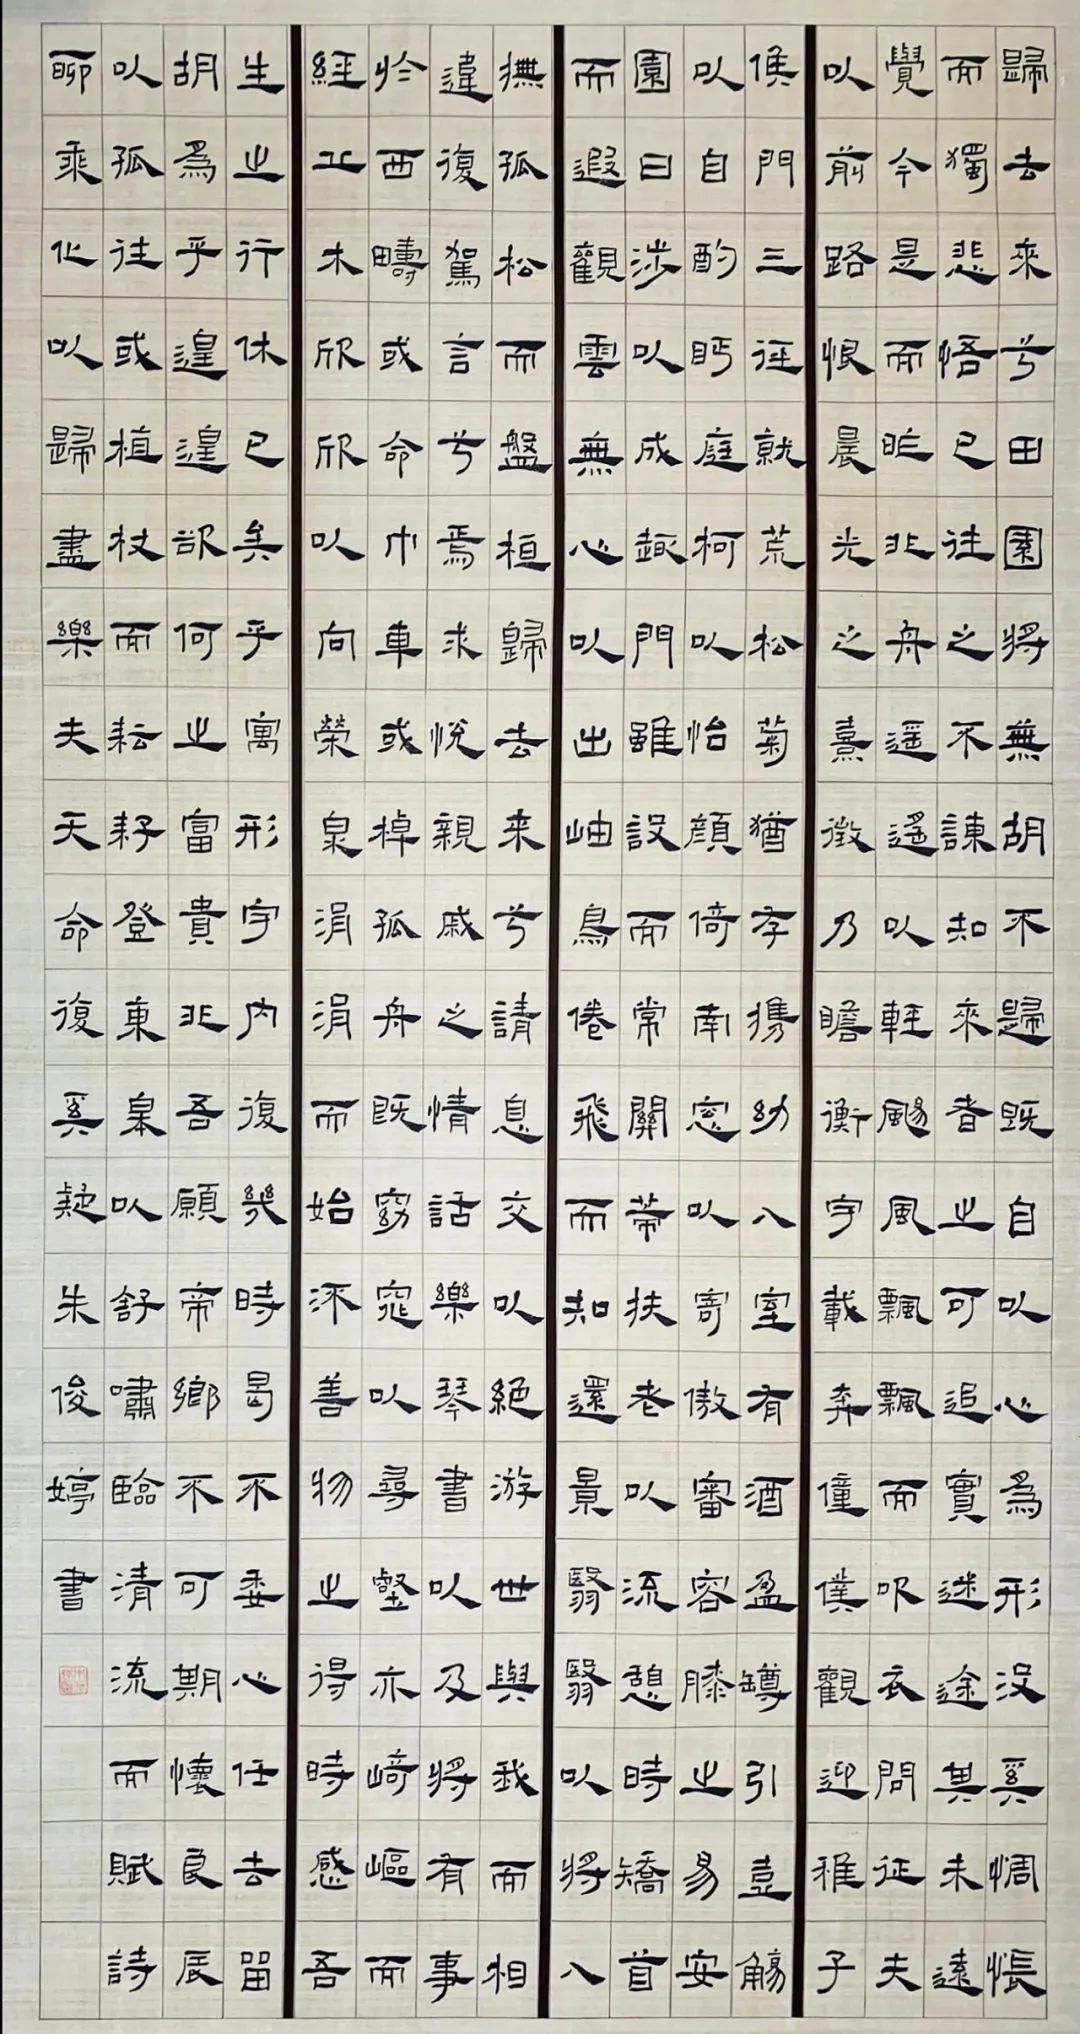 歸去來兮田園將蕪胡不歸既自以心為形役奚惆悵
而獨悲悟已往之不諫知來者之可追實迷途其未遠
覺今是而昨非舟遙遙以輕颺風飄飄而吹衣問征夫
以前路恨晨光之熹微乃瞻衡宇載奔僮僕觀迎稚子
侯門三徑就荒松菊猶存攜幼入室有酒盈罇引壺觴
以自酌眄庭柯以怡顏倚南窗以寄傲審容膝之易安
園日涉以成趣門雖設而常關策扶老以流憩時矯首
而遐觀雲無心以出岫鳥倦飛而知還景翳翳以將入
撫孤松而盤桓歸去來兮請息交以絕游世與我而相
違復駕言兮焉求悅親戚之情話樂琴書以及將有事
於西疇或命巾車或棹孤舟既窈窕以尋壑亦崎嶇而
經丘木欣欣以向榮泉涓涓而始流善物之得時感吾
生之行休已矣乎寓形宇內復幾時曷不委心任去留
胡為乎遑遑欲何之富貴非吾願帝鄉不可期懷良辰
以孤往或植杖而耘耔登東皋以舒嘯臨清流而賦詩
聊乘化以歸盡樂夫天命復奚疑朱俊婷書